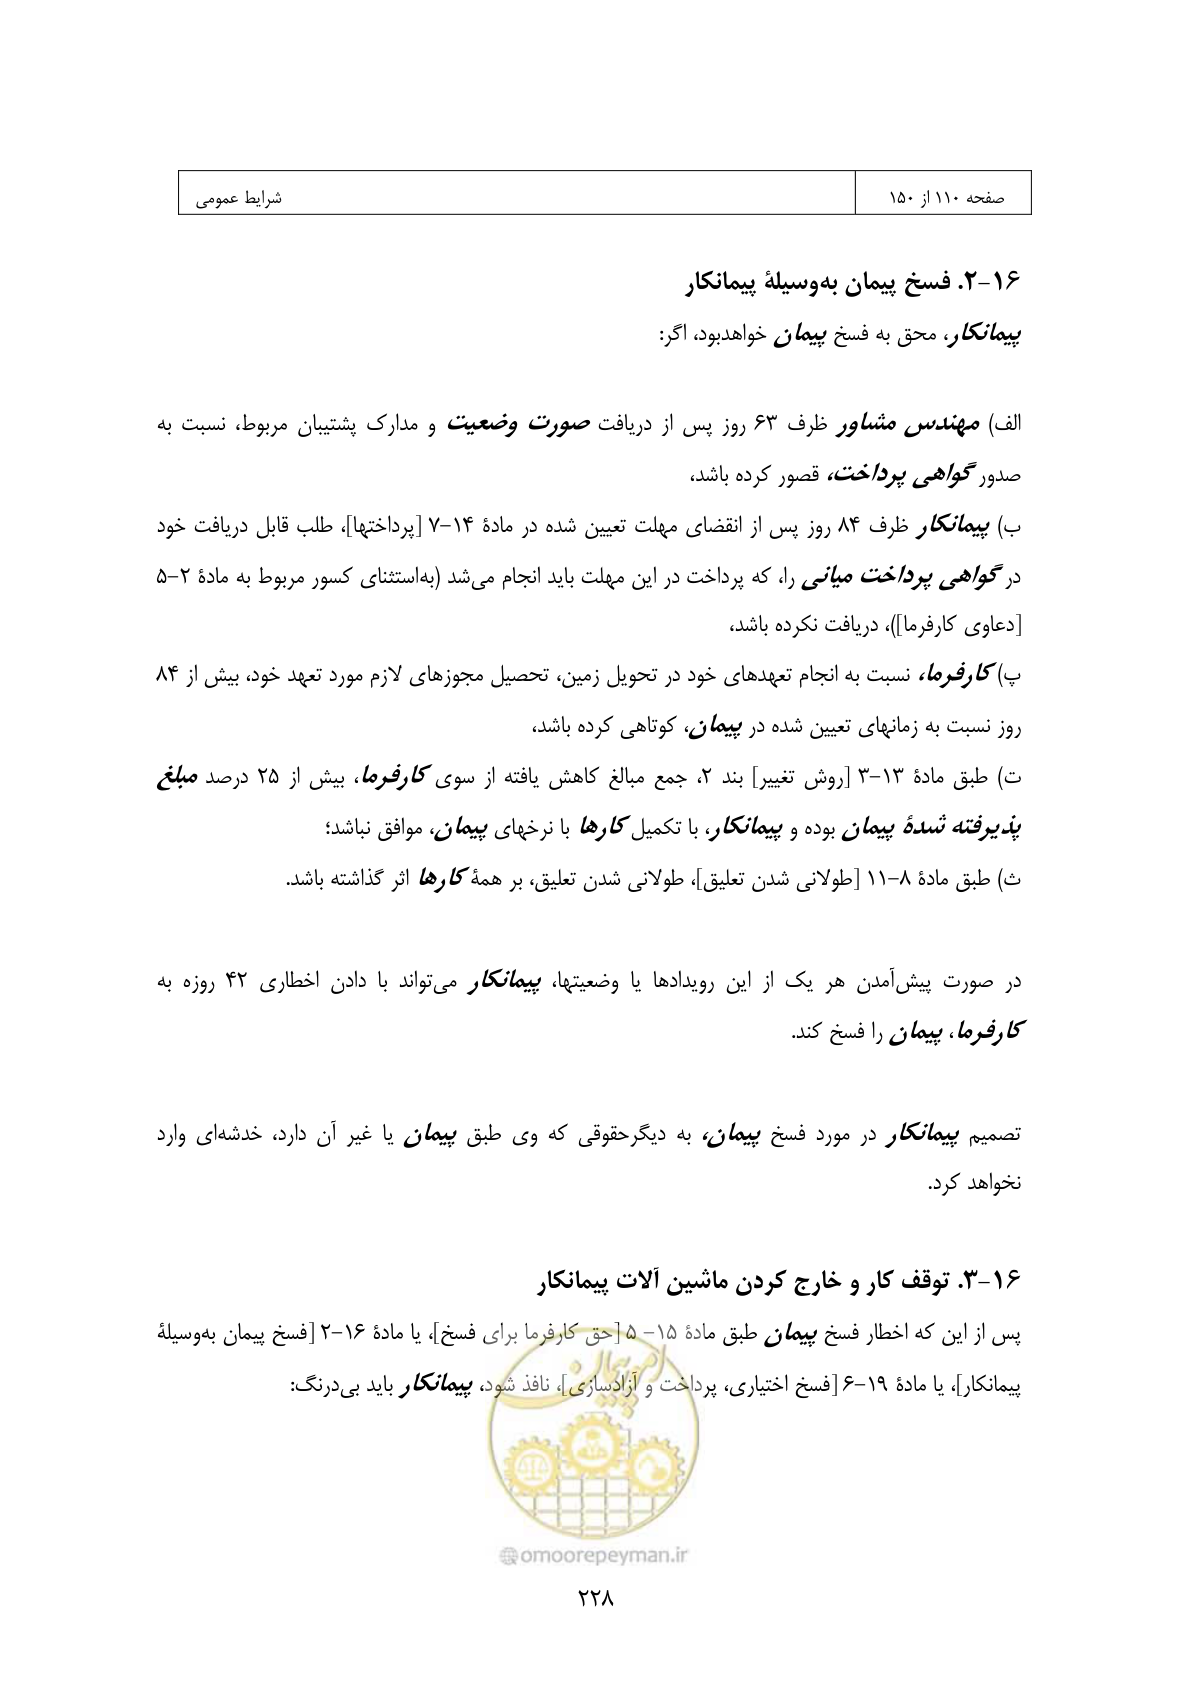 صفحه ۱۱۰ از ۱۵۰
شرایط عمومی
۱۶–۲. فسخ پیمان به‌وسیلهٔ پیمانکار
پیمانکار، محق به فسخ پیمان خواهدبود، اگر:
الف) مهندس مشاور ظرف ۶۳ روز پس از دریافت صورت وضعیت و مدارک پشتیبان مربوط، نسبت به
صدور گواهی پرداخت، قصور کرده باشد،
ب) پیمانکار ظرف ۸۴ روز پس از انقضای مهلت تعیین شده در مادهٔ ۱۴–۷ [پرداختها]، طلب قابل دریافت خود
در گواهی پرداخت میانی را، که پرداخت در این مهلت باید انجام می‌شد (به‌استثنای کسور مربوط به مادهٔ ۲–۵
[دعاوی کارفرما])، دریافت نکرده باشد،
پ) کارفرما، نسبت به انجام تعهدهای خود در تحویل زمین، تحصیل مجوزهای لازم مورد تعهد خود، بیش از ۸۴
روز نسبت به زمانهای تعیین شده در پیمان، کوتاهی کرده باشد،
ت) طبق مادهٔ ۱۳–۳ [روش تغییر] بند ۲، جمع مبالغ کاهش یافته از سوی کارفرما، بیش از ۲۵ درصد مبلغ
پذیرفته شدهٔ پیمان بوده و پیمانکار، با تکمیل کارها با نرخهای پیمان، موافق نباشد؛
ث) طبق مادهٔ ۸–۱۱ [طولانی شدن تعلیق]، طولانی شدن تعلیق، بر همهٔ کارها اثر گذاشته باشد.
در صورت پیش‌آمدن هر یک از این رویدادها یا وضعیتها، پیمانکار می‌تواند با دادن اخطاری ۴۲ روزه به
کارفرما، پیمان را فسخ کند.
تصمیم پیمانکار در مورد فسخ پیمان، به دیگرحقوقی که وی طبق پیمان یا غیر آن دارد، خدشه‌ای وارد
نخواهد کرد.
۱۶–۳. توقف کار و خارج کردن ماشین آلات پیمانکار
پس از این که اخطار فسخ پیمان طبق مادهٔ ۱۵– ۵ [حق کارفرما برای فسخ]، یا مادهٔ ۱۶–۲ [فسخ پیمان به‌وسیلهٔ
پیمانکار]، یا مادهٔ ۱۹–۶ [فسخ اختیاری، پرداخت و آزادسازی]، نافذ شود، پیمانکار باید بی‌درنگ:
امور پیمان
omoorepeyman.ir
۲۲۸